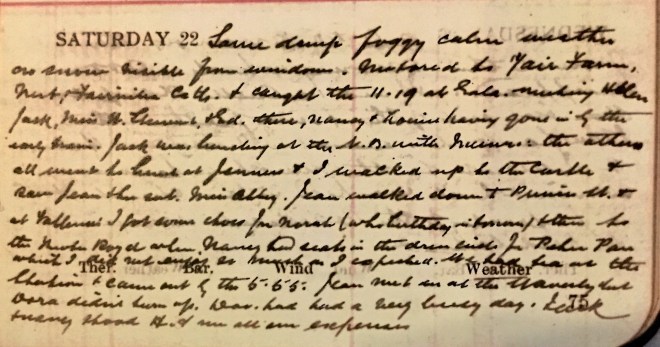 SATURDAY 22 Same damp foggy calm weather
no snow visible from windows. Motored to Fair Farm,
& caught the 11-19 at Gala. meeting Helen
Jack, Miss H. & Ed. there, Nancy & Louise having gone in by the
early train. Jack was lunching at the N.B. with : the others
all went to lunch at Jenners & I walked up to the Castle &
saw Jean & her sub. Miss Abbey. Jean walked down to Princes St. &
at I got some shoes for Norah (whose birthday is tomorrow) & then to
the Theatre Royal where Nancy had seats in the dress circle for Peter Pan
which I did not enjoy so much as I expected. We had tea at the
Ther. Bar. Wind Weather
& came out by the 5.55. Jean met us at the Waverley but
Dora didn't turn up. Dav. had had a very busy day. Jack
& Nancy stood H. & me all our expenses
75